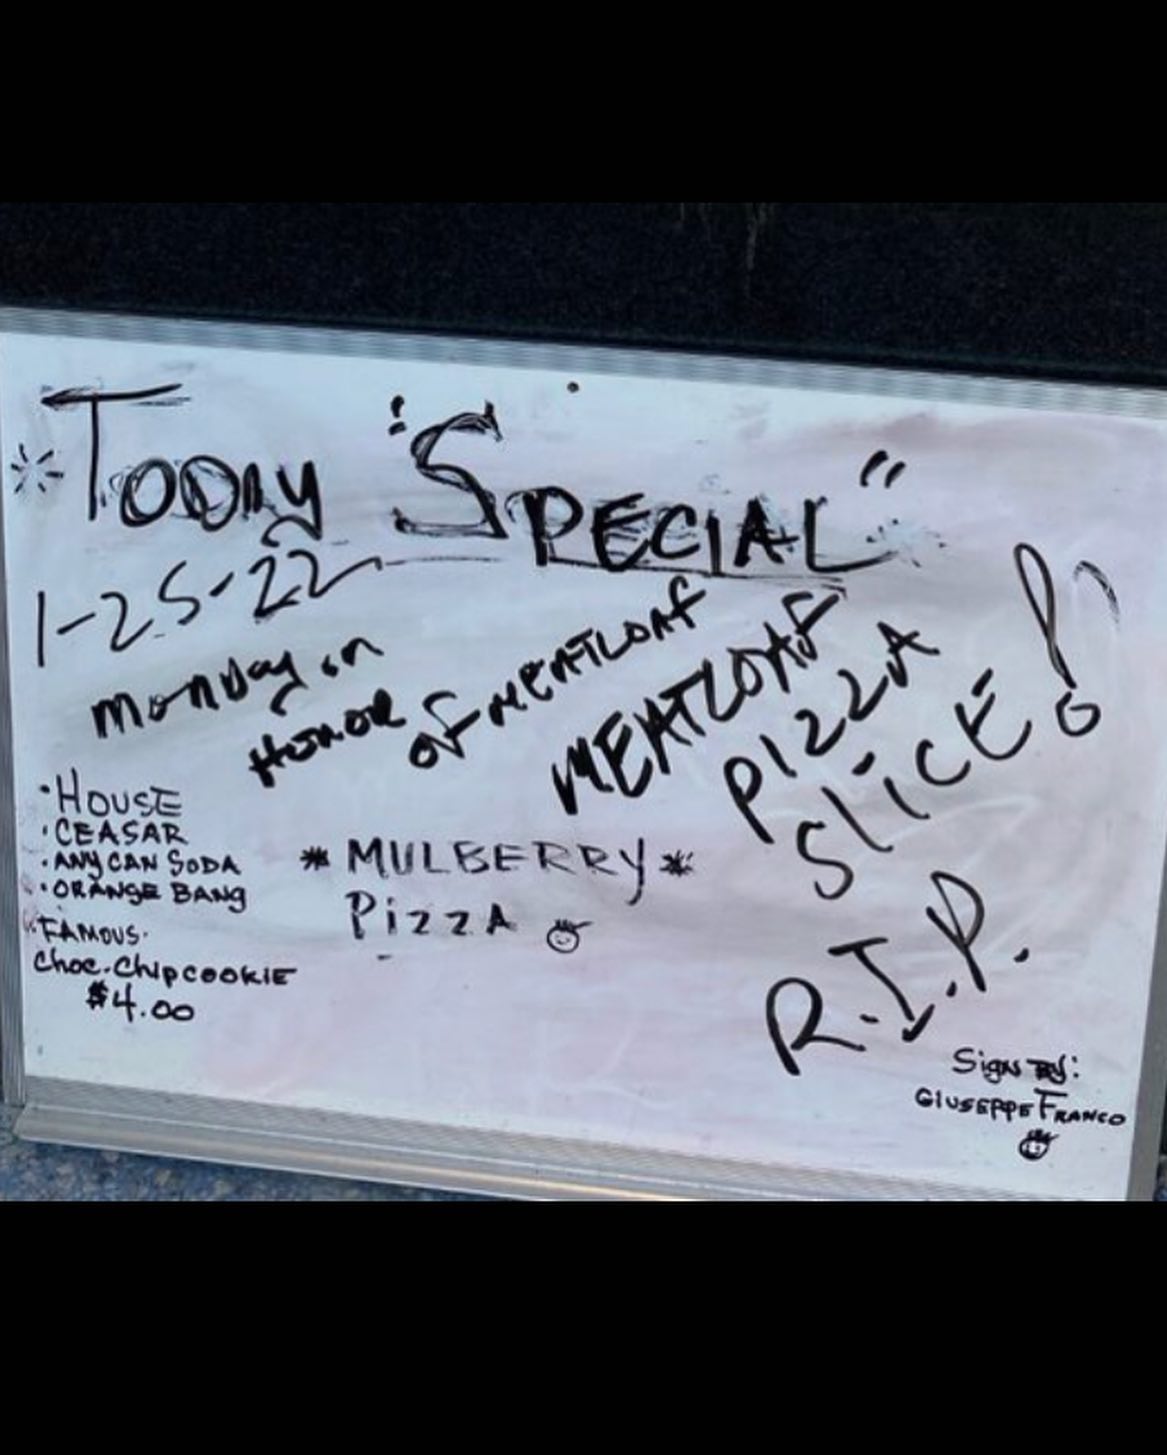 Today "Special"
1-25-22
Monday in
Honor of Meatloaf
MEATLOAF
PIZZA
SLiCE!
R.I.P.
• HOUSE
• CEASAR
• ANY CAN SODA
• ORANGE BANG
FAMOUS.
Choc. Chip COOKIE
$4.00
* MULBERRY *
PizzA
Sign By:
GIUSEPPE FRANCO